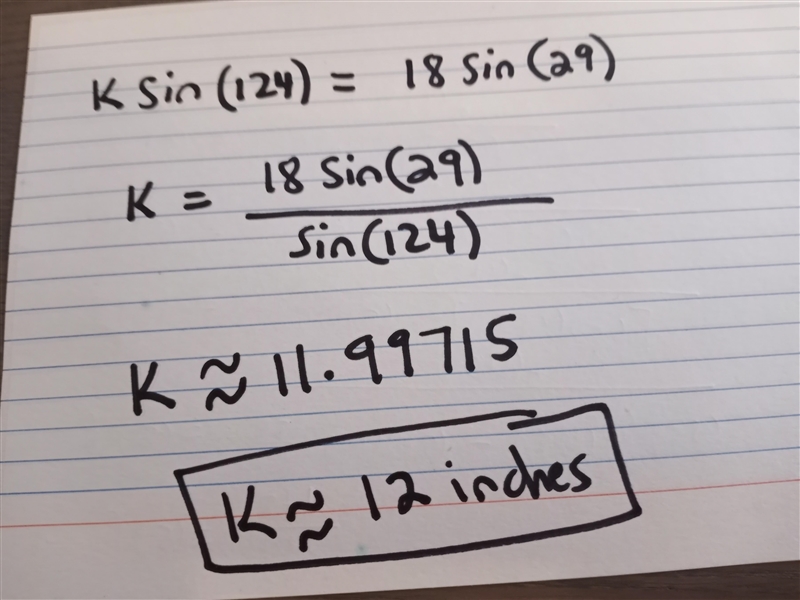 K Sin(124) = 18 Sin(29)
K = 18 Sin(29) / Sin(124)
K ≈ 11.99715
K ≈ 12 inches